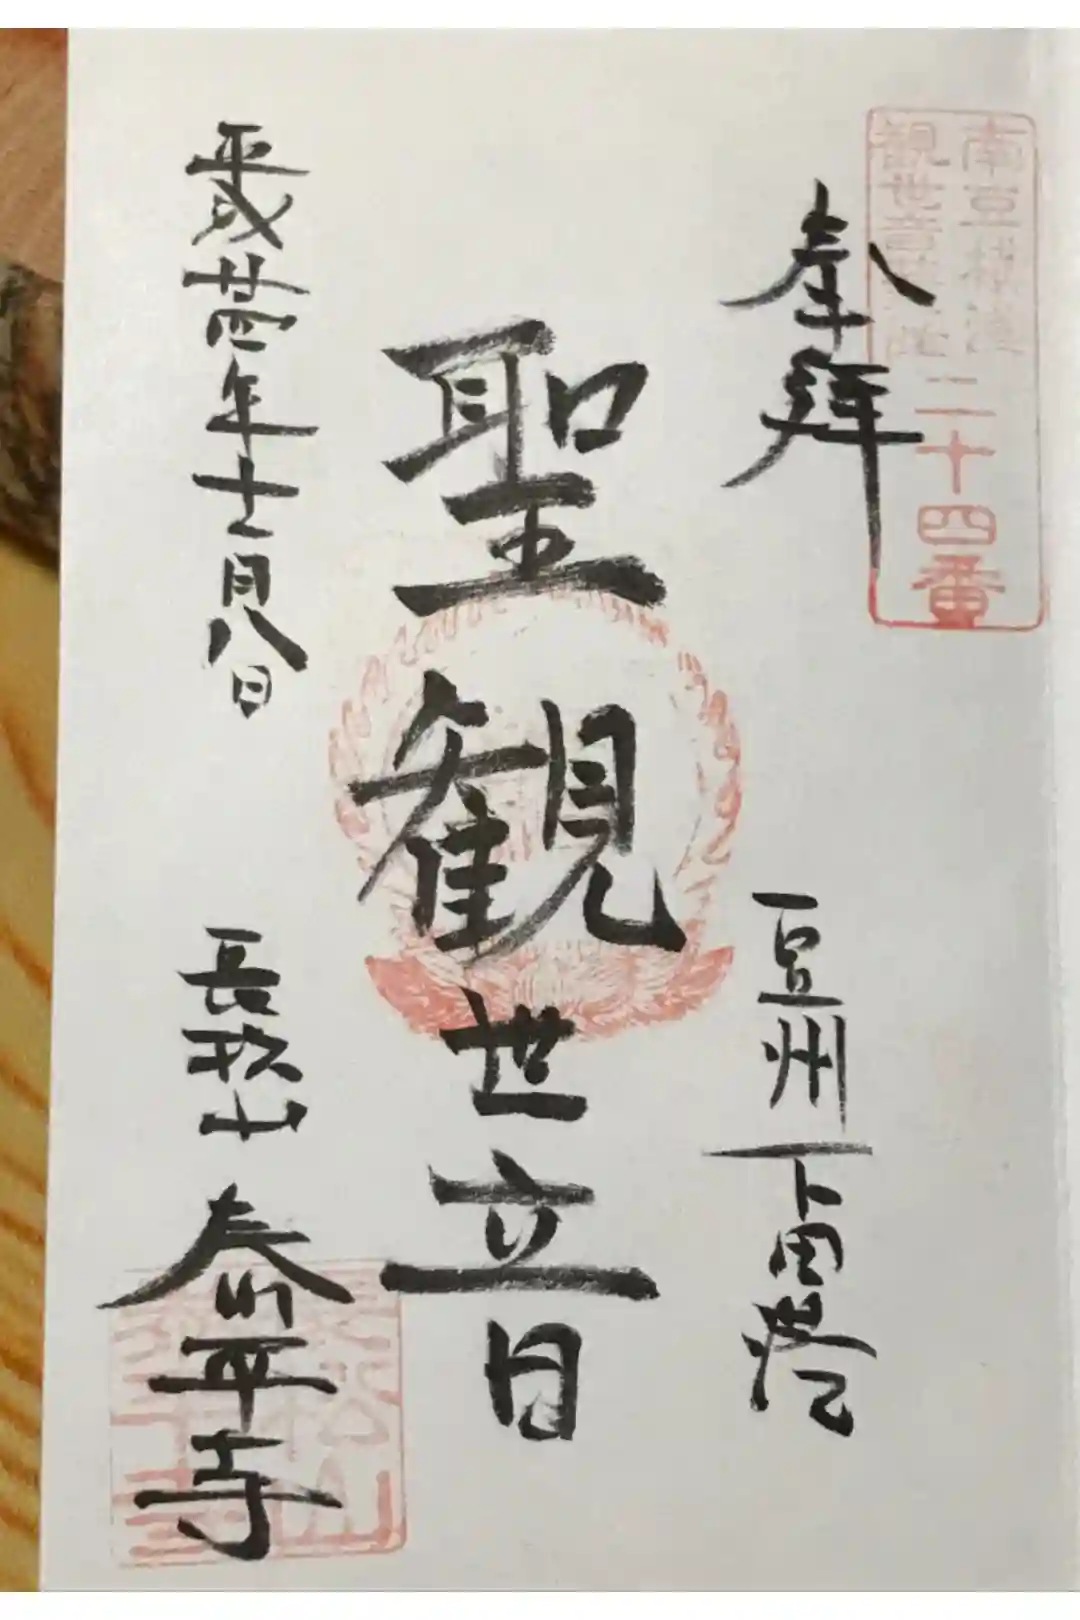 南豆横道
観世音霊場
二十四番
奉拝
豆州下田港
聖観世音
平成廿四年十一月八日
長松山 泰平寺